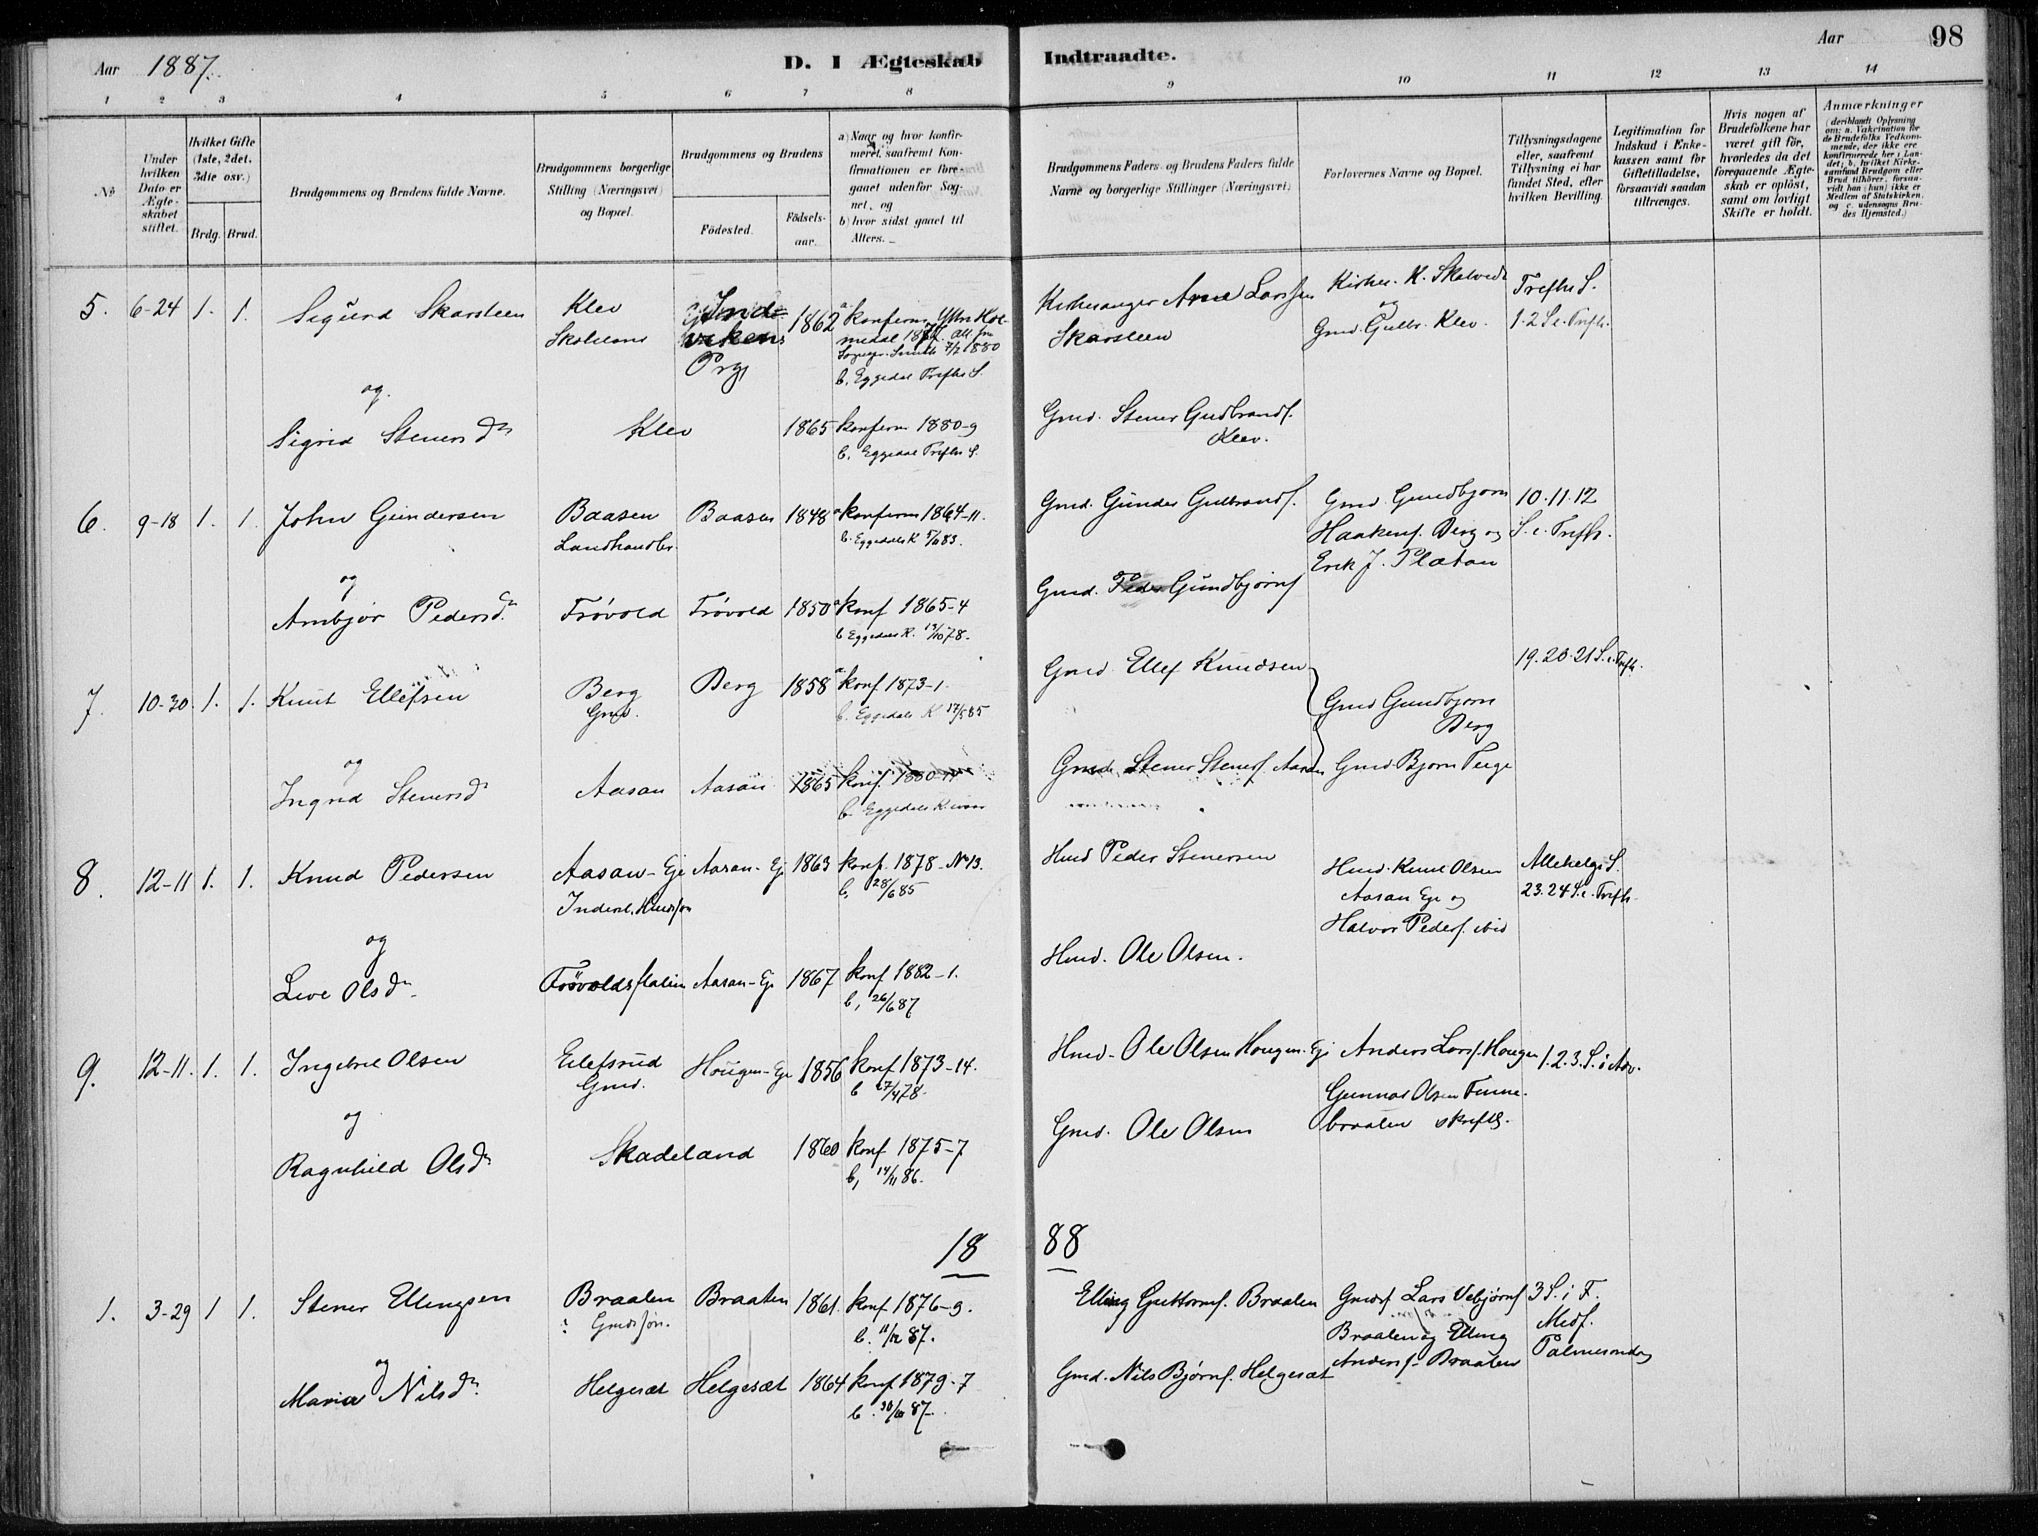 Aar 1887.
D. I Ægteskab Indtraadte.
Aar
98
1 2 3 4 5 6 7 8 9 10 11 12 13 14
No
Under hvilken Dato er Ægteskabet stiftet.
Hvilket Gifte (1ste, 2det, 3die osv.)
Brdg. Brud.
Brudgommens og Brudens fulde Navne.
Brudgommens borgerlige Stilling (Næringsvei) og Bopæl.
Brudgommens og Brudens
Fødested.
Fødselsaar.
a) Naar og hvor konfirmeret, saafremt Konfirmationen er foregaaet udenfor Sognet, og
b) hvor sidst gaaet til Alters.
Brudgommens Faders og Brudens Faders fulde Navne og borgerlige Stillinger (Næringsvei)
Forlovernes Navne og Bopæl.
Tillysningsdagene eller, saafremt Tillysning ei har fundet Sted, efter hvilken Bevilling.
Legitimation for Indskud i Enkekassen samt for Giftetilladelse, forsaavidt saadan tiltrænges.
Hvis nogen af Brudefolkene har været gift før, hvorledes da det foregaaende Ægteskab er opløst, samt om lovligt Skifte er holdt.
Anmærkninger (deriblandt Oplysning om: a. Vakcination for de Brudefolks Vedkommende, der ikke ere konfirmerede her i Landet; b. hvilket Kirkesamfund Brudgom eller Brud tilhører, forsaavidt han (hun) ikke er Medlem af Statskirken, og c. udensogns Brudes Hjemsted.)
5. 6-24 1. 1. Sigurd Skarsteen Klev 1862 Kirkesanger Arne Larssen Kirkes. K. Skalved Trefhs S.
Prg. b. Eggedal Trefhs S. Skarsteen og Gmd. Gulbr. Klev. 1. 2 S. e. Trefh.
og
Sigrid Stenersdr Klev 1865 konferm 1880-9 Gmd. Stener Gudbrands.
b. Eggedal Trefhs S. Klev.
6. 9-18 1. 1. John Gundersen Baasen Baasen 1848 a konferm 1864-11. Gmd. Gunder Gulbrands. Gmd. Gundbjørn 10. 11. 12
Landhandler b. Eggedals K Haakens. Berg og S. e. Trefh.
og Erik J. Platan
Ambjør Pedersdr. Trøvold Trøvold 1850 a konf 1865-4 Gmd. Peder Gundbjørns
b Eggedals K. 13/10 78.
7. 10-30. 1. 1. Knut Ellefsen Berg Berg 1858 a konf 1873-1. Gmd Ellef Knudsen 19. 20. 21 S. e. Trefh.
Gmd. b. Eggedals K 17/5 85 Gmd Gundbjørn Berg
og
Ingrid Stenersdr Aasan Aasan 1865 konf. Gmd. Stener Steners. Aasan Gmd. Bjørn Teige
b. Eggedals K.
8. 12-11 1. 1. Knud Pedersen Aasan-Eje Aasan-Eje 1863 konf. 1878-No 13. Hmd Peder Stenersen Hmd. Knut Olsen Allehelgs S.
b, 28/6 85 Aasan Eje og 23. 24 S. e. Trefh.
Halvor Peders. ibid
og
Live Olsdr Aasan-Eje 1867 konf 1882-1. Hmd. Ole Olsen.
b, 26/6 87
9. 12-11. 1. 1. Ingebret Olsen Eilefsrud Hougen-Eje 1856 konf 1873-14. Hmd. Ole Olsen Hougen-Eje Anders Lars. Hougen 1. 2. 3. S. i Adv.
Gmd. b 27/4 78. Gunnar Olsen Finnebraaten skriftl.
og
Ragnhild Olsdr Skadeland 1860 konf 1875-7 Gmd. Ole Olsen
b, 14/11 86.
18 88
1. 3-29 1 1. Stener Ellingsen Braaten Braaten 1861. konf 1876-9. Elling Guttorms. Braaten Gmds. Lars Vebjørns 3 S. i F.
Gmds søn. b. 11/12 87. Braaten og Elling Midf.
og Anders. Braaten Palmesondag
Maria Nilsdr. Helgesæt Helgesæt 1864 konf 1879-7 Gmd. Nils Bjørns. Helgesæt
b. 30/10 87.